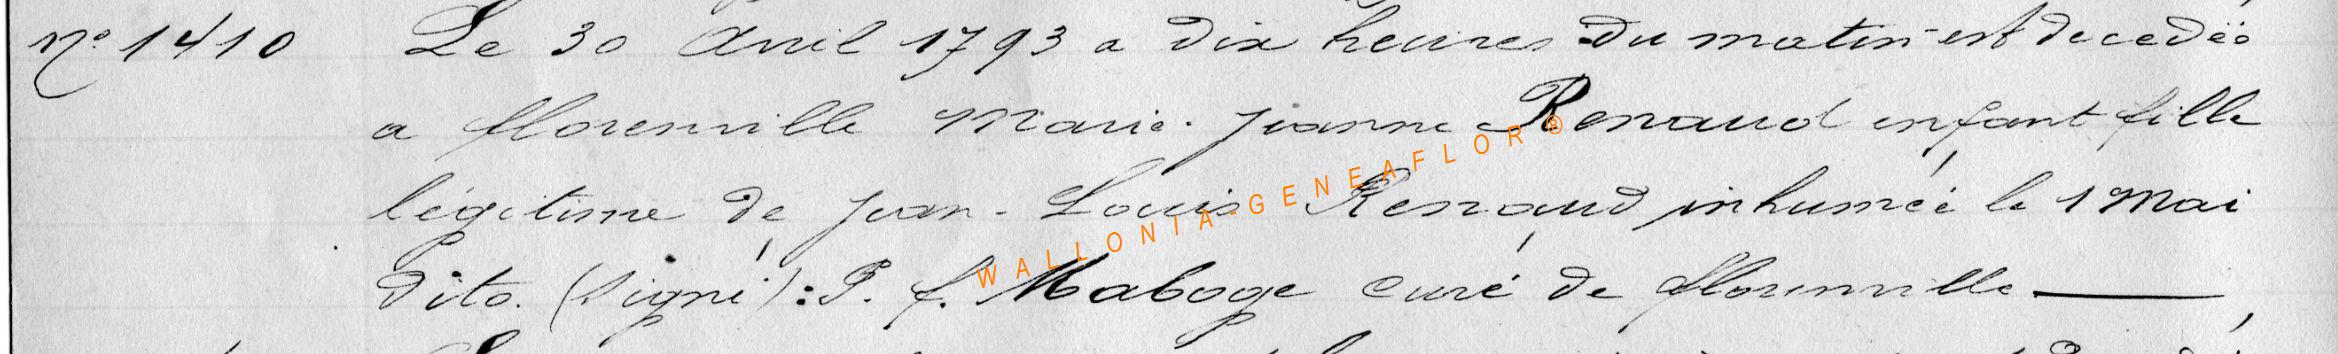 N° 1410 Le 30 Avril 1793 a dix heures du matin est decedéé
a florenville Marie-Jeanne Renaud enfant fille
légitime de Jean-Louis Renaud inhumée le 1 Mai
dito. (Signé): P. f. Maboge curé de florenville
WALLONIA-GENEAFLOR®